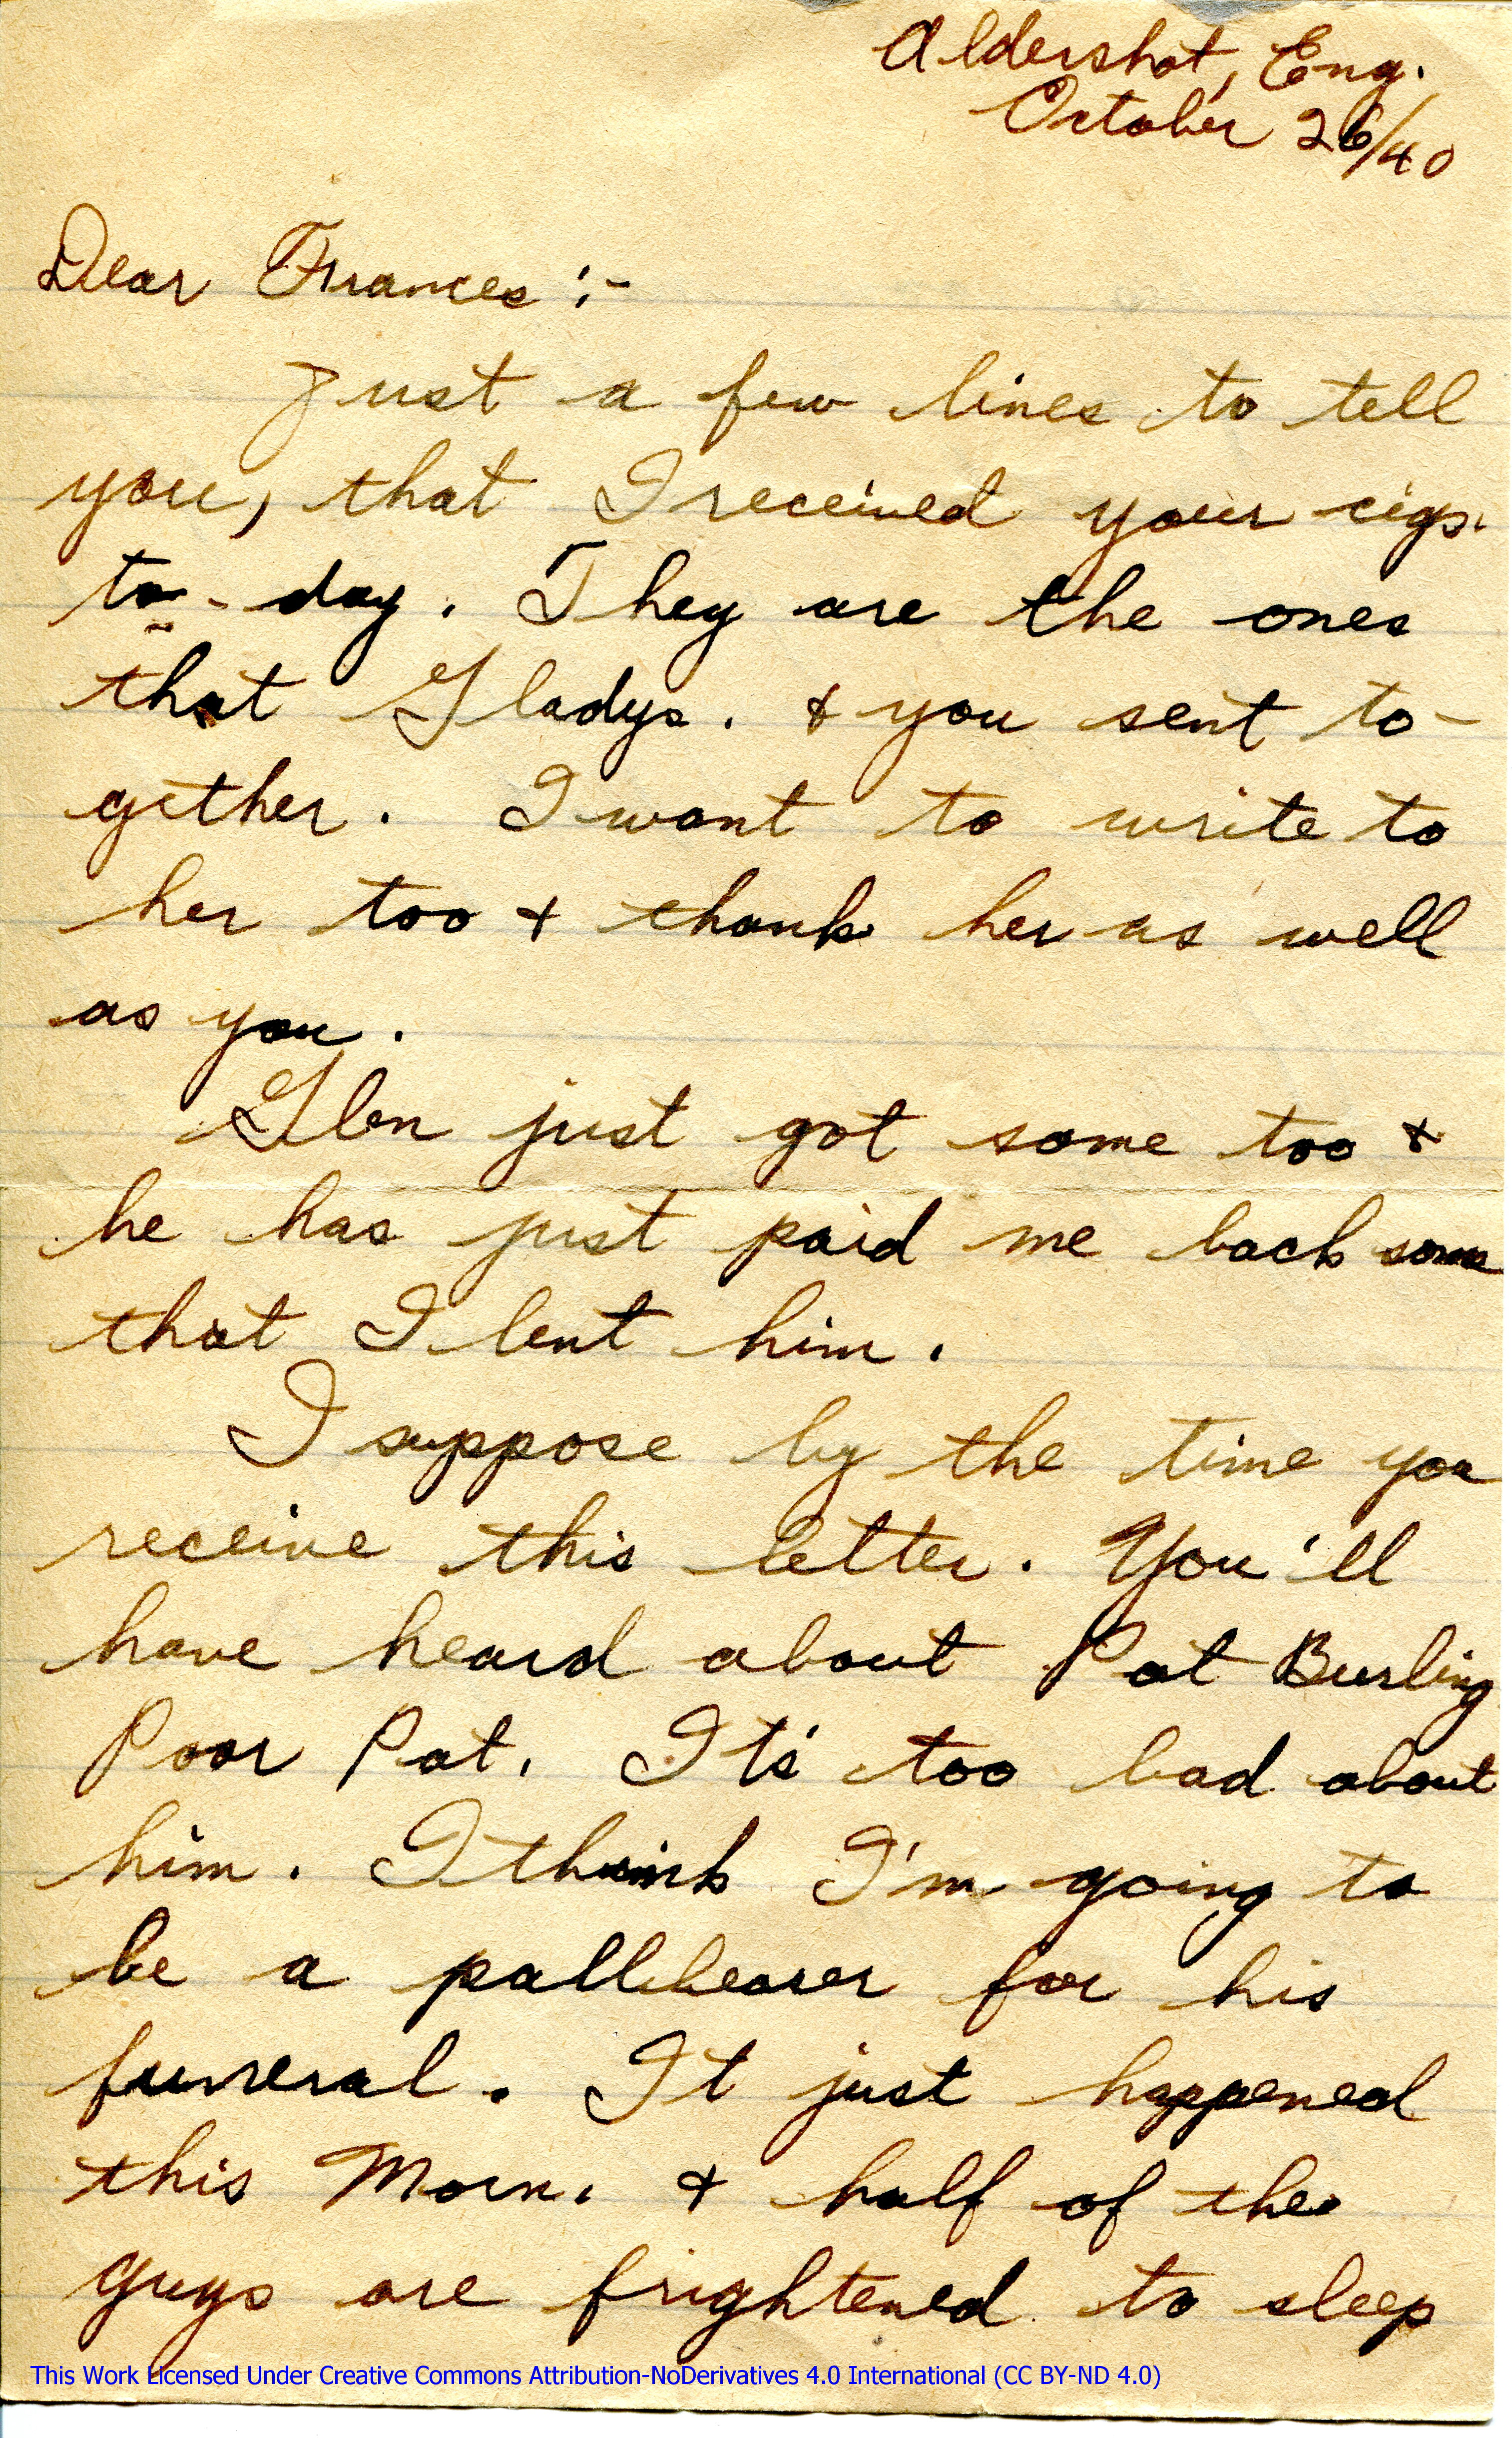 Aldershot, Eng.
October 26/40
Dear Frances :-
Just a few lines to tell
you, that I received your cigs.
to-day. They are the ones
that Gladys. & you sent to-
gether. I want to write to
her too & thank her as well
as you.
Glen just got some too &
he has just paid me back some
that I lent him.
I suppose by the time you
receive this letter. You'll
have heard about Pat Burling
Poor Pat. Its' too bad about
him. I think I'm going to
be a pallbearer for his
funeral. It just happened
this Morn. & half of the
guys are frightened to sleep
This Work Licensed Under Creative Commons Attribution-NoDerivatives 4.0 International (CC BY-ND 4.0)